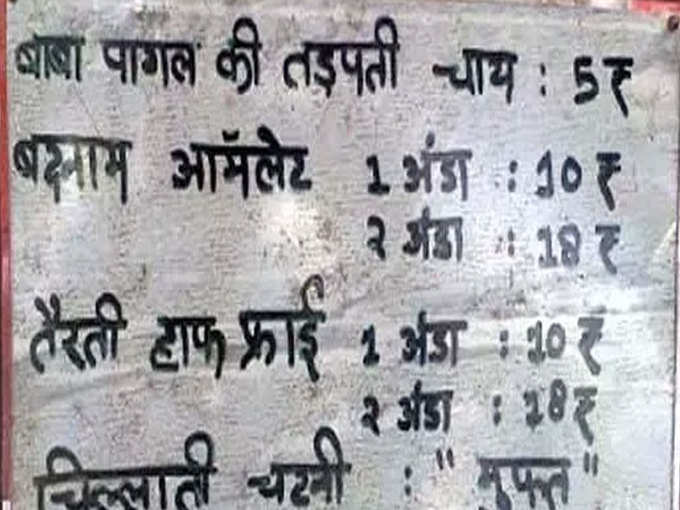 बाबा पागल की तड़पती चाय : 5 ₹
बदनाम ऑमलेट 1 अंडा : 10 ₹
२ अंडा : 18 ₹
तैरती हाफ फ्राई 1 अंडा : 10 ₹
२ अंडा : 18 ₹
चिल्लाती चटनी : "मुफ्त"